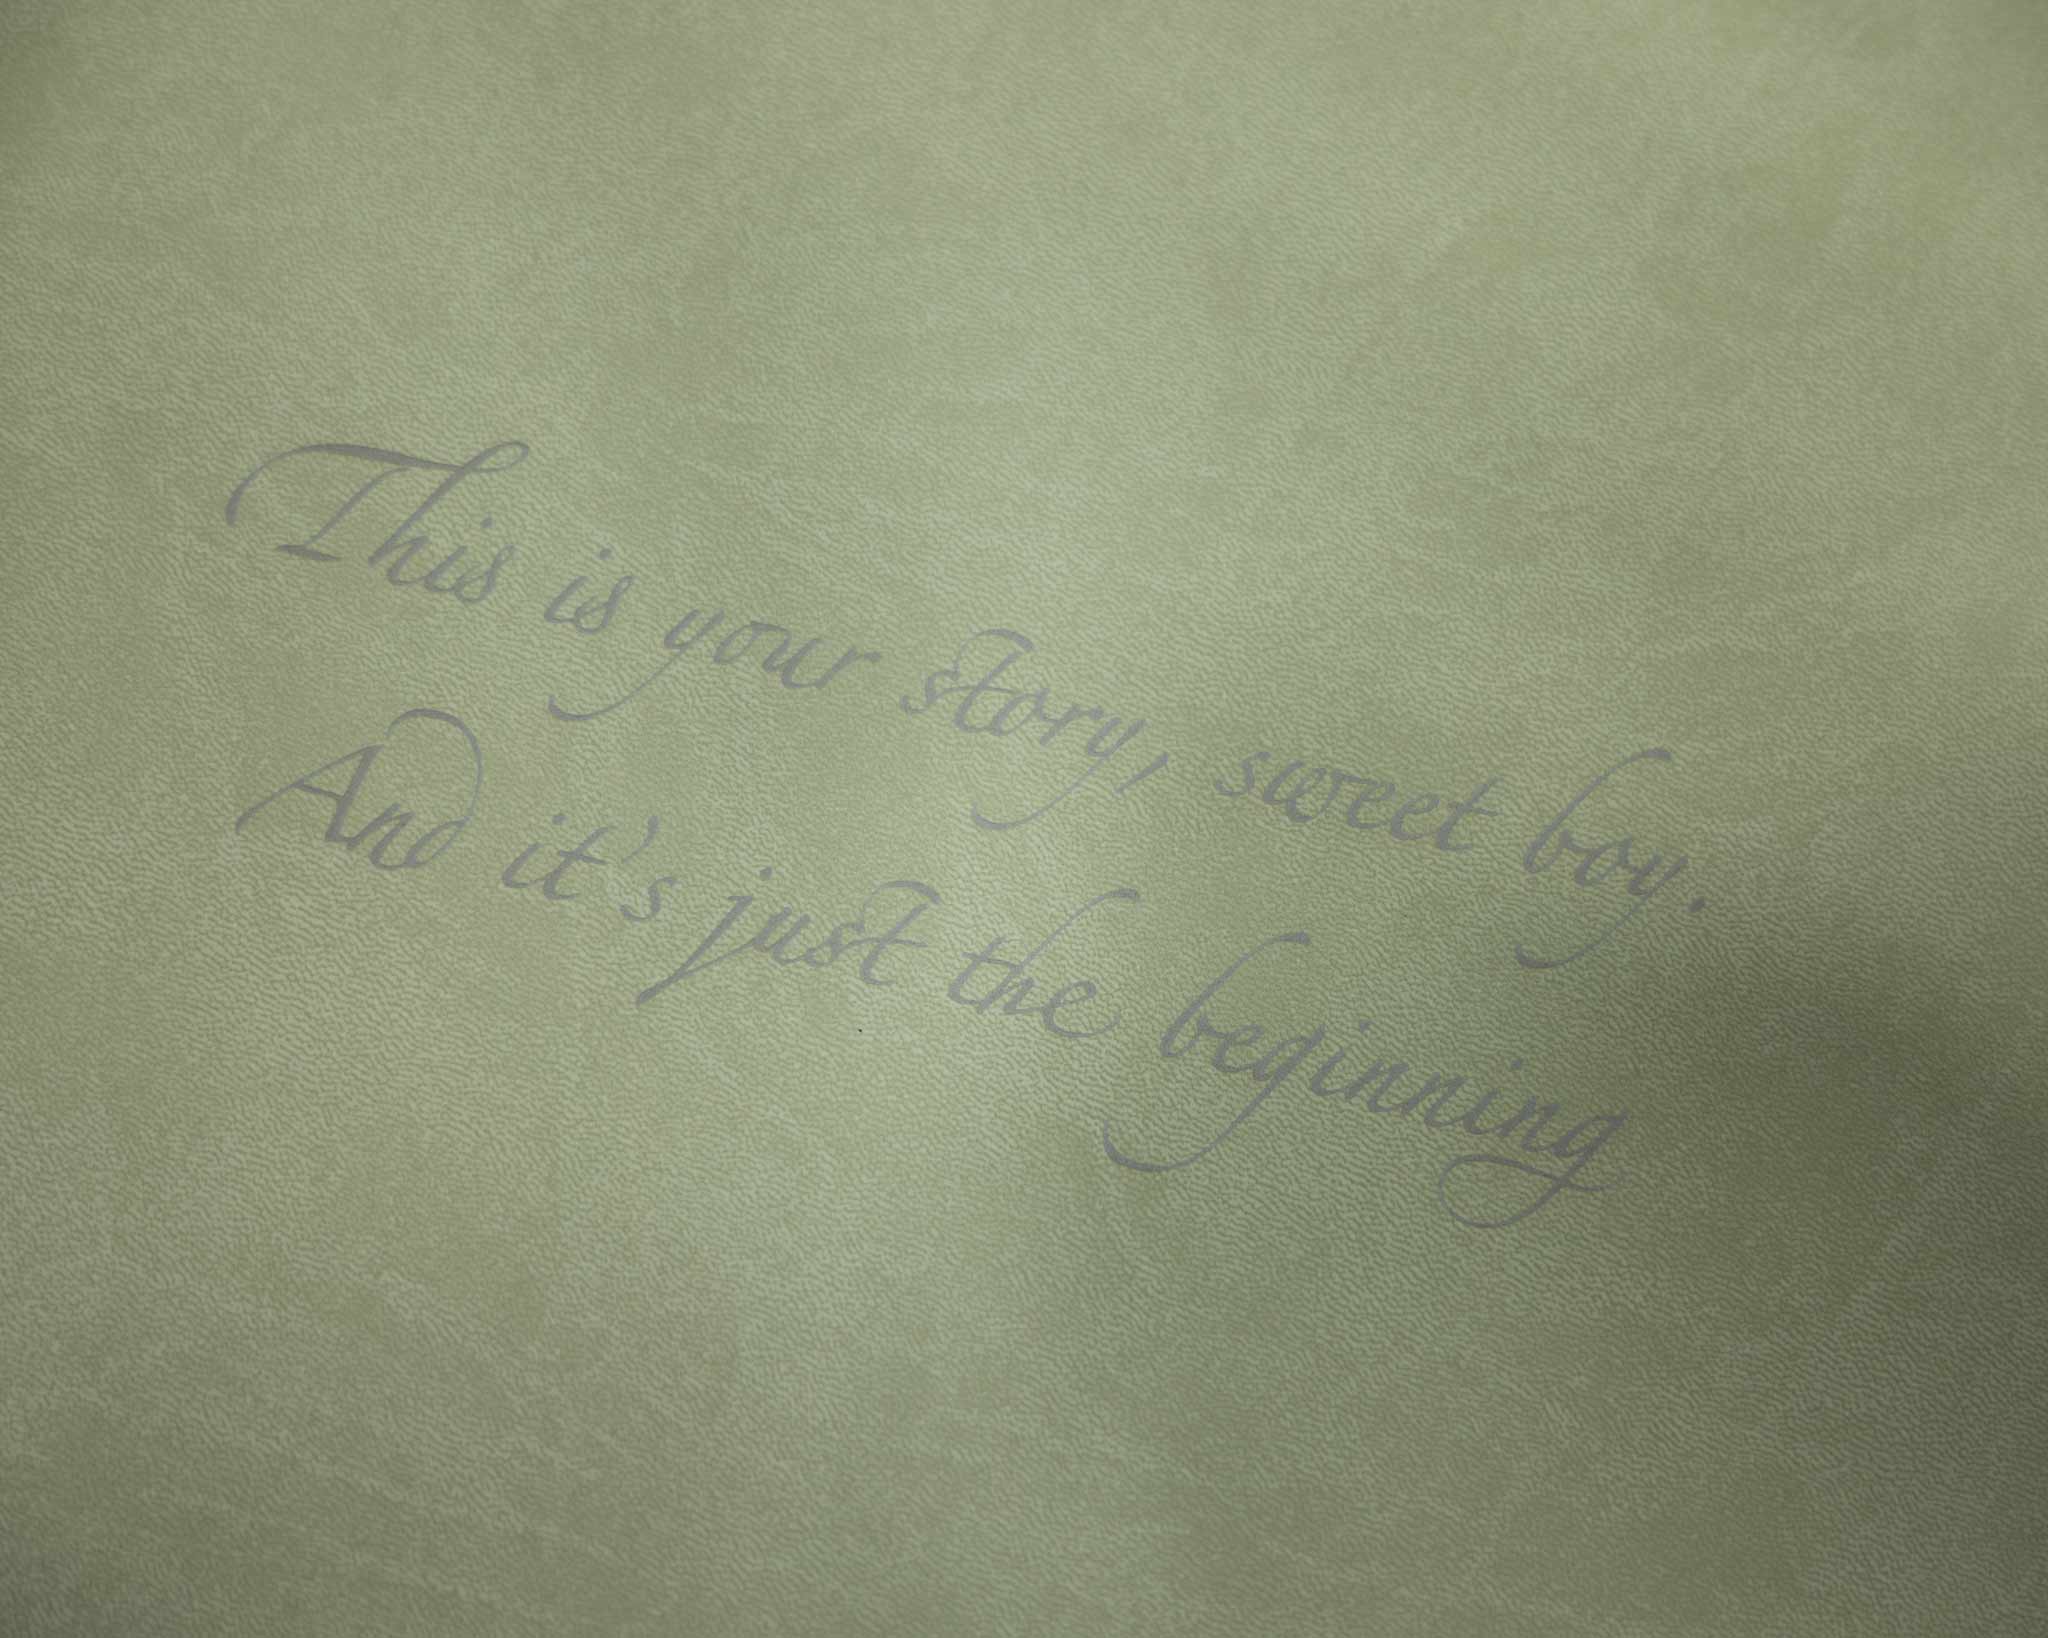 This is your story, sweet boy.
And it's just the beginning